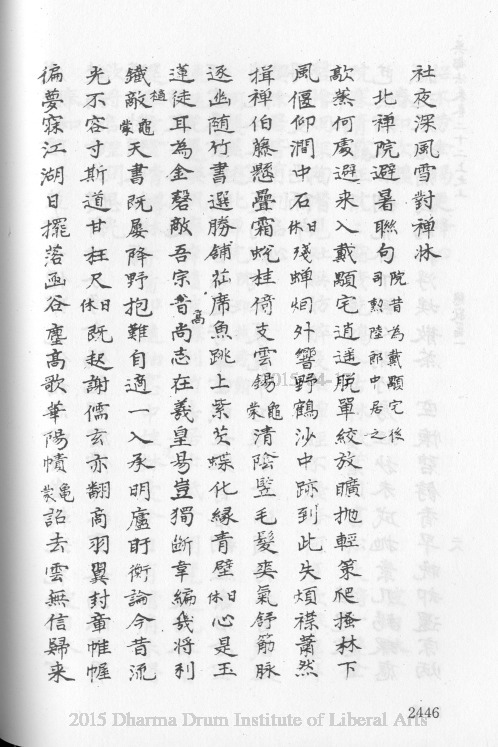 社夜深風雪對禪牀
北禪院避暑聯句 院昔為戴顒宅後司勲陸郎中居之
歊蒸何處避来入戴顒宅逍遥脱單絞放曠抛輕策爬搔林下
風偃仰澗中石休日殘蟬烟外響野鶴沙中跡到此失煩襟蕭然
揖禪伯藤懸疊霜蛻桂倚支雲錫龜蒙清陰豎毛髮爽氣舒筋脉
逐幽随竹書選勝鋪菭席魚跳上紫芡蝶化縁青壁休日心是玉
蓮徒耳為金磬敵吾宗昔高尚志在羲皇易豈獨斷韋編幾將刓
鐵敵龜蒙天書既屡降野抱難自適一入承明廬盱衡論今昔流
光不容寸斯道甘枉尺休日既起謝儒玄亦翻商羽翼封章帷幄
徧夢寐江湖日擺落函谷塵高歌華陽幘龜蒙詔去雲無信歸来
2446
2015 Dharma Drum Institute of Liberal Arts